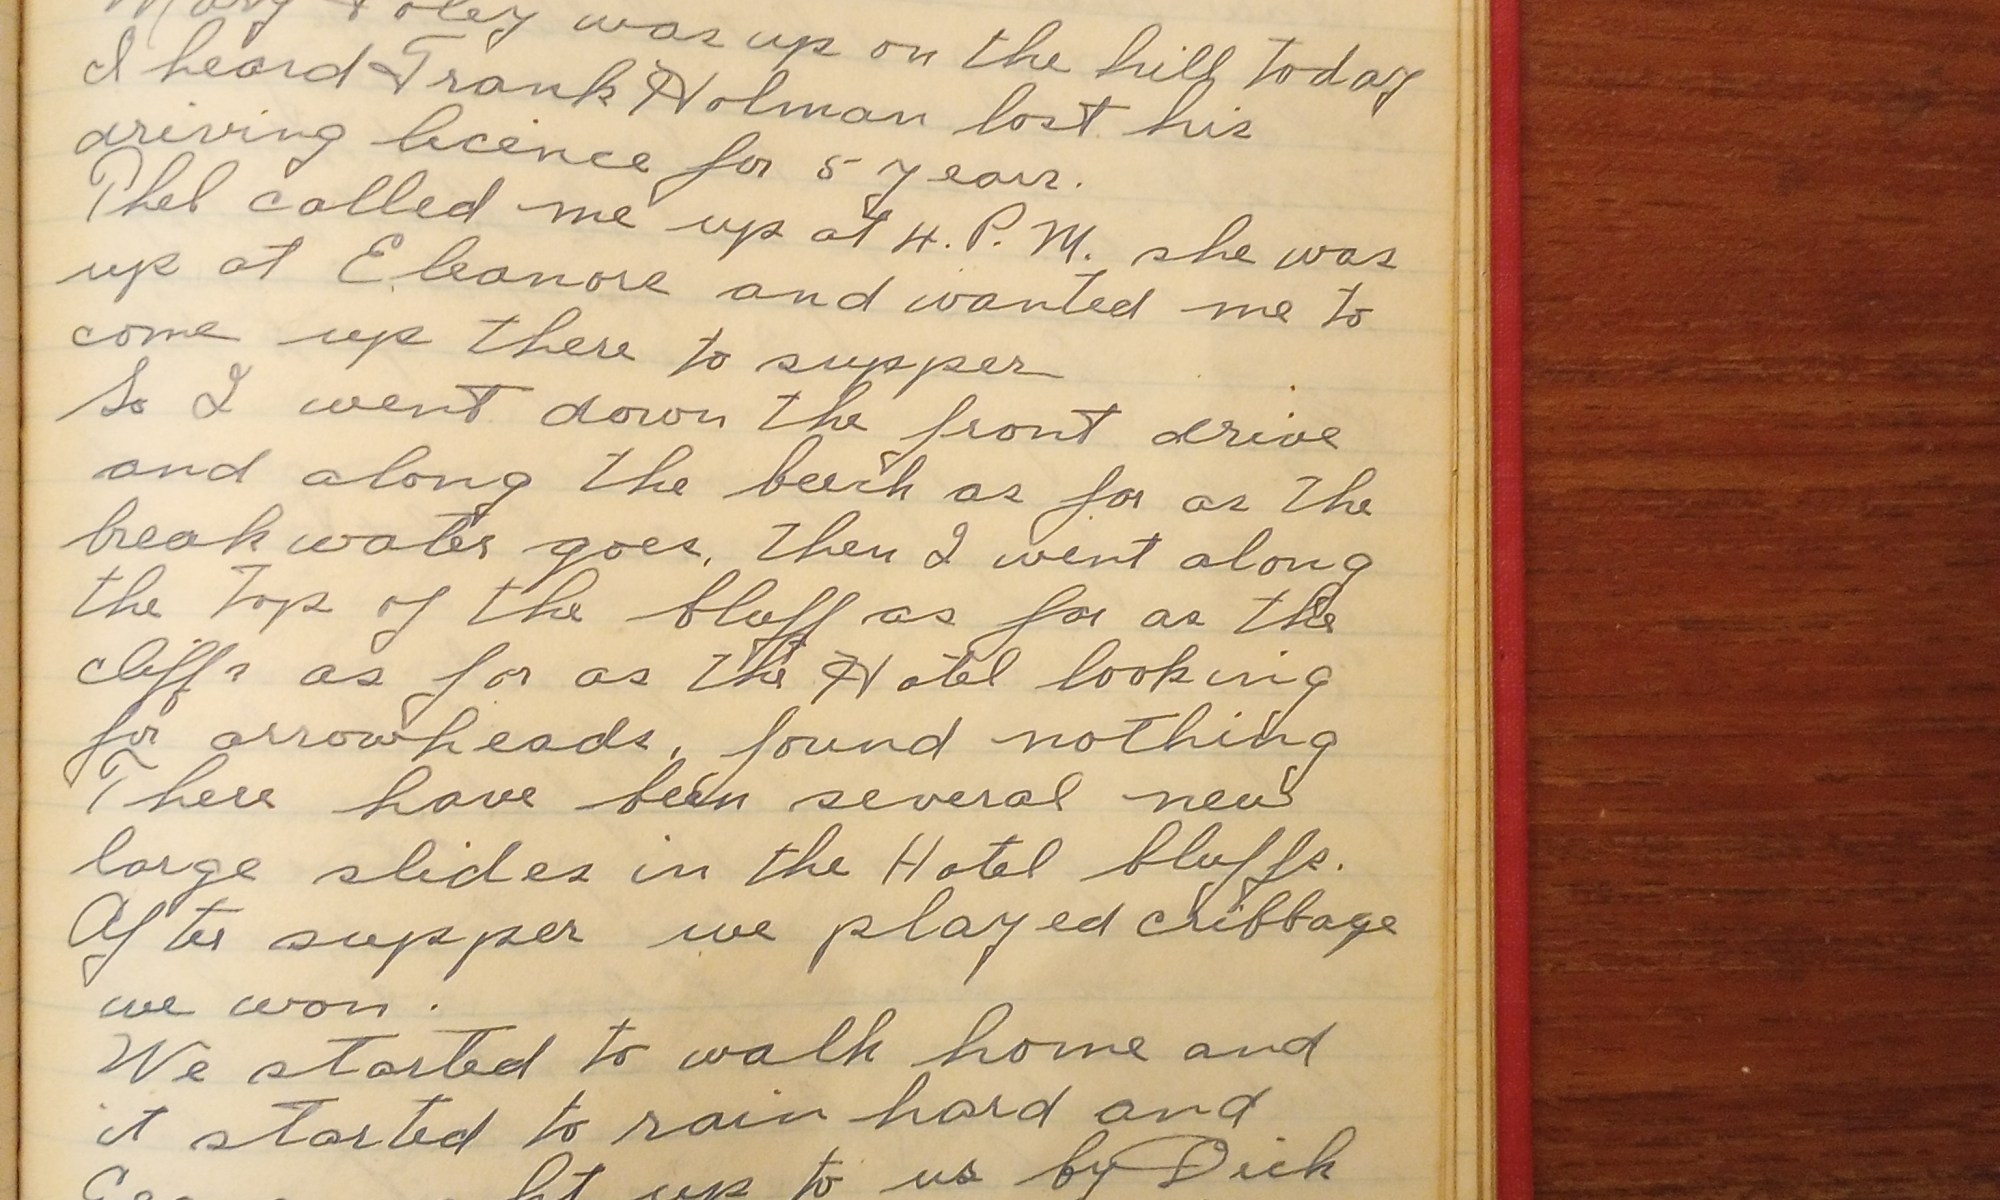 Mary Foley was up on the hill today
I heard Frank Holman lost his
driving licence for 5 years.
Phel called me up at 4. P. M. she was
up at Eleanore and wanted me to
come up there to supper
So I went down the front drive
and along the beech as far as the
breakwater goes, then I went along
the top of the bluff as far as the
cliffs as far as the Hotel looking
for arrowheads, found nothing
There have been several new
large slides in the Hotel bluffs.
After supper we played cribbage
we won.
We started to walk home and
it started to rain hard and
up to us by Dick